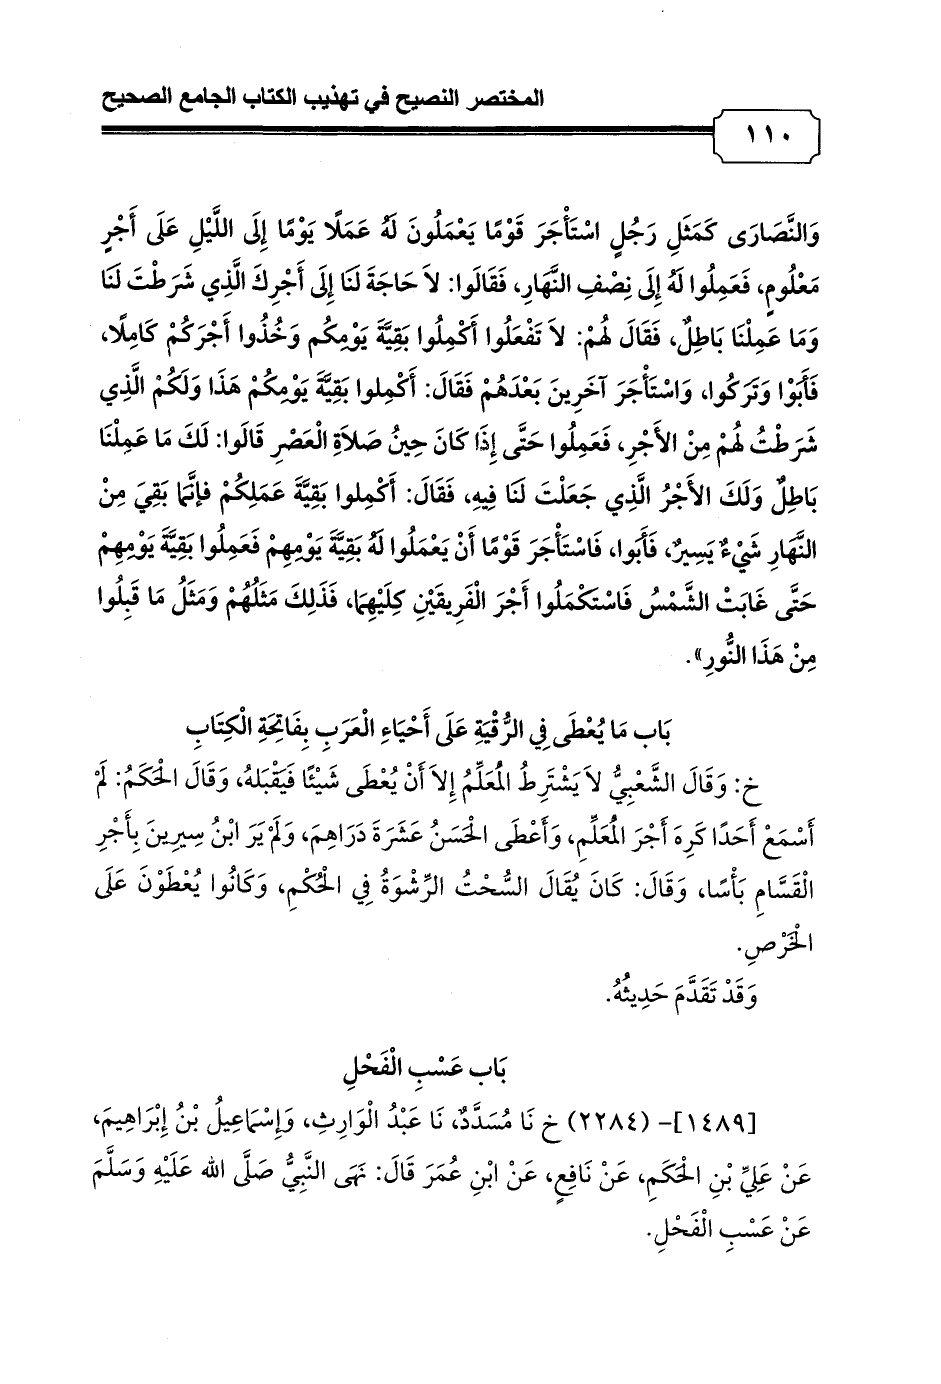 المختصر النصيح في تهذيب الكتاب الجامع الصحيح
١١٠
وَالنَّصَارَى كَمَثَلِ رَجُلٍ اسْتَأْجَرَ قَوْمًا يَعْمَلُونَ لَهُ عَمَلًا يَوْمًا إِلَى اللَّيْلِ عَلَى أَجْرٍ
مَعْلُومٍ، فَعَمِلُوا لَهُ إِلَى نِصْفِ النَّهَارِ، فَقَالُوا: لاَ حَاجَةَ لَنَا إِلَى أَجْرِكَ الَّذِي شَرَطْتَ لَنَا
وَمَا عَمِلْنَا بَاطِلٌ، فَقَالَ لَهُمْ: لاَ تَفْعَلُوا أَكْمِلُوا بَقِيَّةَ يَوْمِكُم وَخُذُوا أَجْرَكُمْ كَامِلًا،
فَأَبَوْا وَتَرَكُوا، وَاسْتَأْجَرَ آخَرِينَ بَعْدَهُمْ فَقَالَ: أَكْمِلوا بَقِيَّةَ يَوْمِكُمْ هَذَا وَلَكُمْ الَّذِي
شَرَطْتُ لَهُمْ مِنْ الأَجْرِ، فَعَمِلُوا حَتَّى إِذَا كَانَ حِينُ صَلاَةِ الْعَصْرِ قَالُوا: لَكَ مَا عَمِلْنَا
بَاطِلٌ وَلَكَ الأَجْرُ الَّذِي جَعَلْتَ لَنَا فِيهِ، فَقَالَ: أَكْمِلوا بَقِيَّةَ عَمَلِكُمْ فإنَّمَا بَقِيَ مِنْ
النَّهَارِ شَيْءٌ يَسِيرٌ، فَأَبَوا، فَاسْتَأْجَرَ قَوْمًا أَنْ يَعْمَلُوا لَهُ بَقِيَّةَ يَوْمِهِمْ فَعَمِلُوا بَقِيَّةَ يَوْمِهِمْ
حَتَّى غَابَتْ الشَّمْسُ فَاسْتَكْمَلُوا أَجْرَ الْفَرِيقَيْنِ كِلَيْهِمَا، فَذَلِكَ مَثَلُهُمْ وَمَثَلُ مَا قَبِلُوا
مِنْ هَذَا النُّورِ».
بَاب مَا يُعْطَى فِي الرُّقْيَةِ عَلَى أَحْيَاءِ الْعَرَبِ بِفَاتِحَةِ الْكِتَابِ
خ: وَقَالَ الشَّعْبِيُّ لاَ يَشْتَرِطُ الْمُعَلِّمُ إِلاَ أَنْ يُعْطَى شَيْئًا فَيَقْبَلهُ، وَقَالَ الْحَكَمُ: لَمْ
أَسْمَعْ أَحَدًا كَرِهَ أَجْرَ الْمُعَلِّمِ، وَأَعْطَى الْحَسَنُ عَشَرَةَ دَرَاهِمَ، وَلَمْ يَرَ ابْنُ سِيرِينَ بِأَجْرِ
الْقَسَّامِ بَأْسًا، وَقَالَ: كَانَ يُقَالَ السُّحْتُ الرِّشْوَةُ فِي الْحُكْمِ، وَكَانُوا يُعْطَوْنَ عَلَى
الْخَرْصِ.
وَقَدْ تَقَدَّمَ حَدِيثُهُ.
بَاب عَسْبِ الْفَحْلِ
[١٤٨٩]- (٢٢٨٤) خ نَا مُسَدَّدٌ، نَا عَبْدُ الْوَارِثِ، وَإِسْمَاعِيلُ بْنُ إِبْرَاهِيمَ،
عَنْ عَلِيِّ بْنِ الْحَكَمِ، عَنْ نَافِعٍ، عَنْ ابْنِ عُمَرَ قَالَ: نَهَى النَّبِيُّ صَلَّى الله عَلَيْهِ وَسَلَّمَ
عَنْ عَسْبِ الْفَحْلِ.